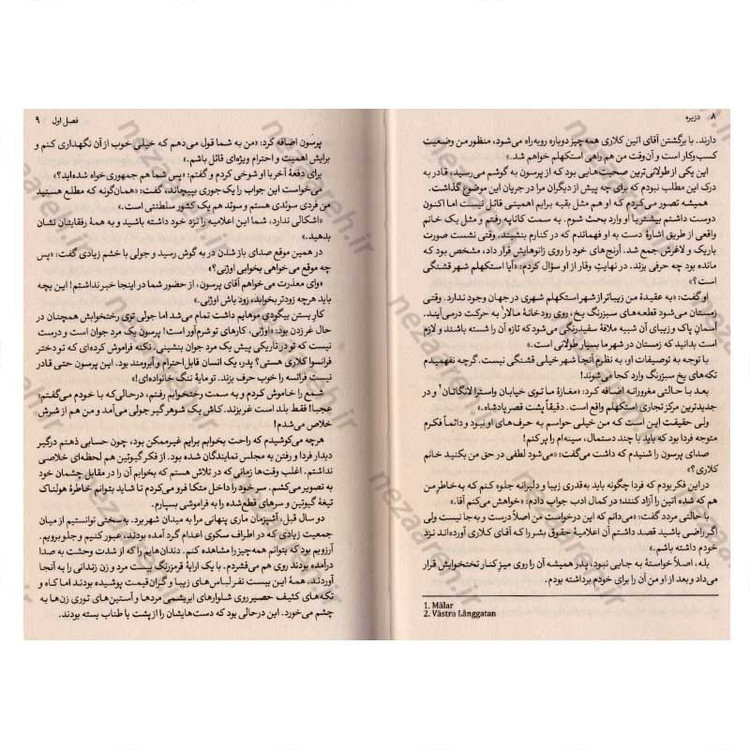 ۸ دزیره
دارند. با برگشتن آقای اتین کلاری همه‌چیز دوباره روبه‌راه می‌شود، منظور من وضعیت
کسب‌وکار است و آن وقت من هم راهی استکهلم خواهم شد.»
این یکی از طولانی‌ترین صحبت‌هایی بود که از سوی پرسون به گوشم می‌رسید، قادر به
درک این مطلب نبودم که برای چه پیش از دیگران مرا در جریان این موضوع گذاشت.
همیشه تصور می‌کردم که او هم مثل بقیه برایم اهمیتی قائل نیست اما اکنون
دوست داشتم بیشتر با او وارد بحث شوم. به سمت کاناپه رفتم و مثل یک خانم
واقعی از طریق اشارهٔ دست به او فهماندم که در کنارم بنشیند. وقتی نشست صورت
باریک و لاغرش جمع شد. آرنج‌های خود را روی زانوهایش قرار داد، مشخص بود که
مانده بود چه حرفی بزند. در نهایتِ وقار از او سؤال کردم: «آیا استکهلم شهر قشنگی
است؟»
او گفت: «به عقیدهٔ من زیباتر از شهر استکهلم شهری در جهان وجود ندارد. وقتی
زمستان می‌شود قطعه‌های سبزرنگ یخ، روی رودخانهٔ مالار۱ به حرکت درمی‌آیند.
آسمانِ پاک و زیبای آن شبیه ملافهٔ سفیدرنگی می‌شود که تازه آن را شسته باشند و لازم
است بدانید که زمستان در شهر ما بسیار طولانی است.»
با توجه به توصیفات او، به نظرم آنجا شهر خیلی قشنگی نیست. گرچه نفهمیدم
تکه‌های یخ سبزرنگ وارد کجا می‌شوند!
بعد با حالتی مغرورانه اضافه کرد: «مغازهٔ ما توی خیابان واسترا لانگاتان۲ و در
جدیدترین مرکز تجاری استکهلم واقع است. دقیقاً پشت قصر پادشاه.»
ولی حقیقت این است که من خیلی حواسم به حرف‌های او نبود و دائماً فکرم
متوجه فردا بود که باید با چند دستمال، سینه‌ام را پر کنم!
صدای پرسون را شنیدم که داشت می‌گفت: «می‌شود لطفی در حق من بکنید خانم
کلاری؟»
در این فکر بودم که فردا چگونه باید به‌قدری زیبا و دلبرانه جلوه کنم که به‌خاطرِ من
هم که شده اتین را آزاد کنند؛ در کمال ادب جواب دادم: «خواهش می‌کنم آقا.»
با حالتی مردد گفت: «می‌دانم که این درخواست من اصلاً درست و به‌جا نیست ولی
اگر راضی باشید قصد داشتم آن اعلامیهٔ حقوق بشر را که آقای کلاری آورده‌اند نزد
خودم داشته باشم.»
بله، اصلاً خواستهٔ به جایی نبود، پدر همیشه آن را روی میزِ کنار تختخوابش قرار
می‌داد و بعد از او من آن را برای خودم برداشته بودم.
1. Mälar
2. Västra Långgatan
فصل اول ۹
پرسون اضافه کرد: «من به شما قول می‌دهم که خیلی خوب از آن نگهداری کنم و
برایش اهمیت و احترام ویژه‌ای قائل باشم.»
برای دفعهٔ آخر با او شوخی کردم و گفتم: «پس شما هم جمهوری‌خواه شده‌اید؟»
می‌خواست این جواب را یک‌جوری بپیچاند، گفت: «همان‌گونه که مطلع هستید
من فردی سوئدی هستم و سوئد هم یک کشور سلطنتی است.»
«اشکالی ندارد، شما این اعلامیه را نزد خود داشته باشید و به همهٔ رفقایتان نشان
بدهید.»
در همین موقع صدای باز شدن در به گوش رسید و جولی با خشم زیادی گفت: «پس
چه موقع می‌خواهی بخوابی اوژنی؟»
«وای معذرت می‌خواهم آقای پرسون، از حضور شما در اینجا خبر نداشتم! این بچه
باید هرچه زودتر بخوابد، زود باش اوژنی.»
کار بستن بیگودیِ موهایم داشت تمام می‌شد اما جولی توی رختخوابش همچنان در
حال غر زدن بود: «اوژنی، کارهای تو شرم‌آور است! پرسون یک مرد جوان است و درست
نیست که در تاریکی پیش یک مرد جوان بنشینی، نکنه فراموش کرده‌ای که تو دختر
فرانسوا کلاری هستی؟ پدر، یک انسان قابل‌احترام و آبرومند بود. این پرسون حتی قادر
نیست فرانسه را خوب حرف بزند. تو مایهٔ ننگ خانواده‌ای!»
شمع را خاموش کردم و به سمت رختخوابم رفتم، درحالی‌که با خودم می‌گفتم:
عجبا! فقط بلد است غر بزند. کاش یک شوهر گیر جولی می‌آمد و من هم از شرش
خلاص می‌شدم!
هرچه می‌کوشیدم که راحت بخوابم برایم غیرممکن بود، چون حسابی ذهنم درگیر
دیدار فردا و رفتن به مجلس نمایندگان شده بود. از فکر گیوتین هم لحظه‌ای خلاصی
نداشتم. اغلب وقت‌ها زمانی که در تلاش هستم که بخوابم آن را در مقابل چشمان خود
به تصویر می‌کشم. سر خود را داخل متکا فرو می‌کردم تا شاید بتوانم خاطرهٔ هولناک
تیغهٔ گیوتین و سرهای قطع‌شده را به فراموشی بسپارم.
دو سال قبل، آشپزمان ماری پنهانی مرا به میدان شهر برد. به‌سختی توانستیم از میان
جمعیت زیادی که در اطراف سکوی اعدام گرد آمده بودند، عبور کنیم و جلو برویم.
آرزویم بود که بتوانم همه‌چیز را مشاهده کنم. دندان‌هایم را که از شدت وحشت به صدا
درآمده بودند روی هم می‌فشردم. با یک ارابهٔ قرمزرنگ بیست مرد و زن زندانی را به آنجا
آوردند. همهٔ این بیست نفر لباس‌های زیبا و گران‌قیمت پوشیده بودند اما کاه و
تکه‌های کثیف حصیر روی شلوارهای ابریشمی مردها و آستین‌های توری زن‌ها به
چشم می‌خورد. این درحالی بود که دست‌هایشان را از پشت با طناب بسته بودند.
nezaareh.ir